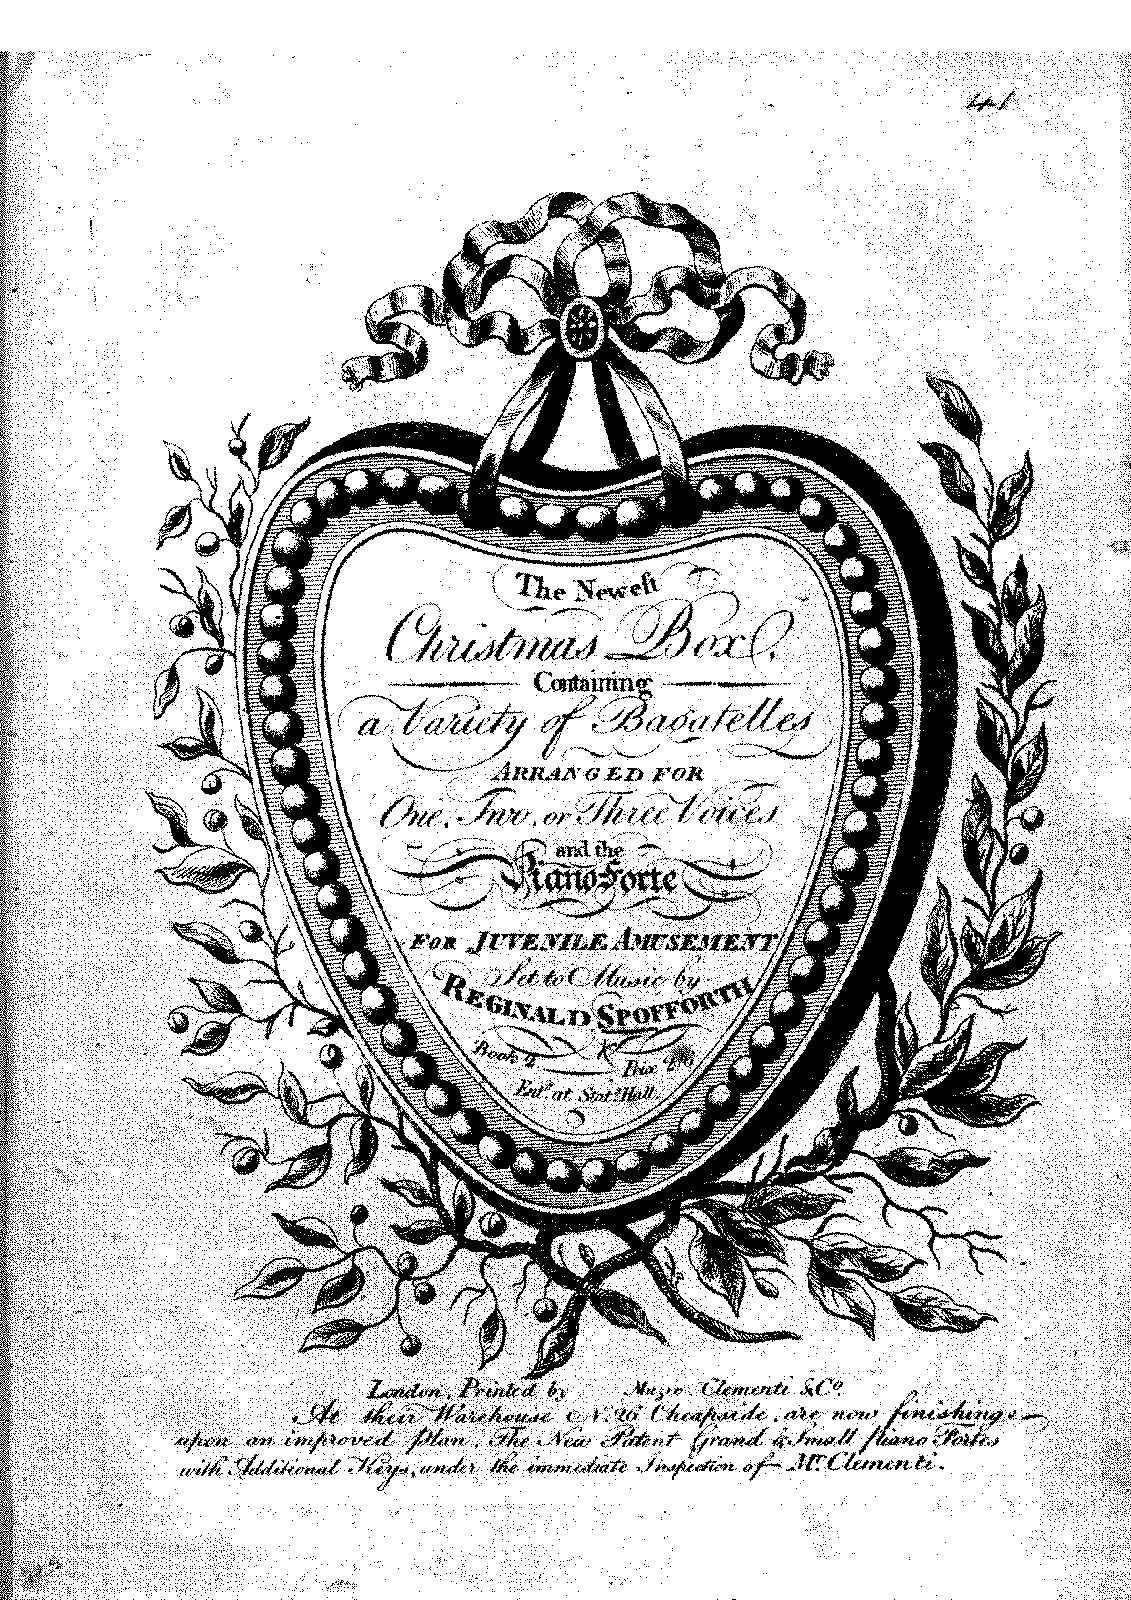 The Neweſt
Christmas Box,
Containing
a Variety of Bagatelles
ARRANGED FOR
One, Two, or Three Voices
and the
PianoForte
FOR JUVENILE AMUSEMENT
Set to Music by
REGINALD SPOFFORTH
Book 2 Price
Entd. at Statrs. Hall
London, Printed by Muzio Clementi & Co.
At their Warehouse No. 26 Cheapside, are now finishing
upon an improved plan, The New Patent Grand & Small Piano Fortes
with Additional Keys, under the immediate Inspection of Mr. Clementi.